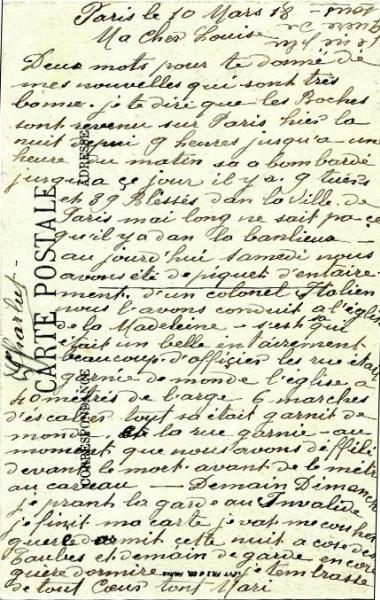 Paris le 10 Mars 18
Ma cher Louise
Deux mots pour te donné de
mes nouvelles qui sont très
bonne. je te diré que les Boches
sont revenu sur Paris hier la
nuit depui 9 heures jusqu'a une
heure du matin sa a bombardé
jusqua ce jour il y a. 9 tuers
et 89 Blessés dan la ville. de
Paris mai long ne sait pa ce
qu'il y a dan la banlieux
au jourd'hui samedi nous
avons été de piquet d'entaire
ment. d'un colonel Italien
nous l'avons conduit a l'église
de la Madeleine - s'est qui
était un belle entairement
beaucoup. d'officier les rue était
garnie de monde l'église a
40 mètres de large 6 marches
d'escalier tout sa était garnit de
monde et la rue garnie - au
moment que nous avons défilé
devant le mort avant de le mètre
au caveau - Demain Dimanche
je prant la garde au Invalide
je finit ma carte je vat me coucher
quere dormit cette nuit a cose des
Taubes et demain de garde encore
quere dormire je tembrasse
de tout Coeur tont Mari
Charlut
CARTE POSTALE
CORRESPONDANCE
ADRESSE